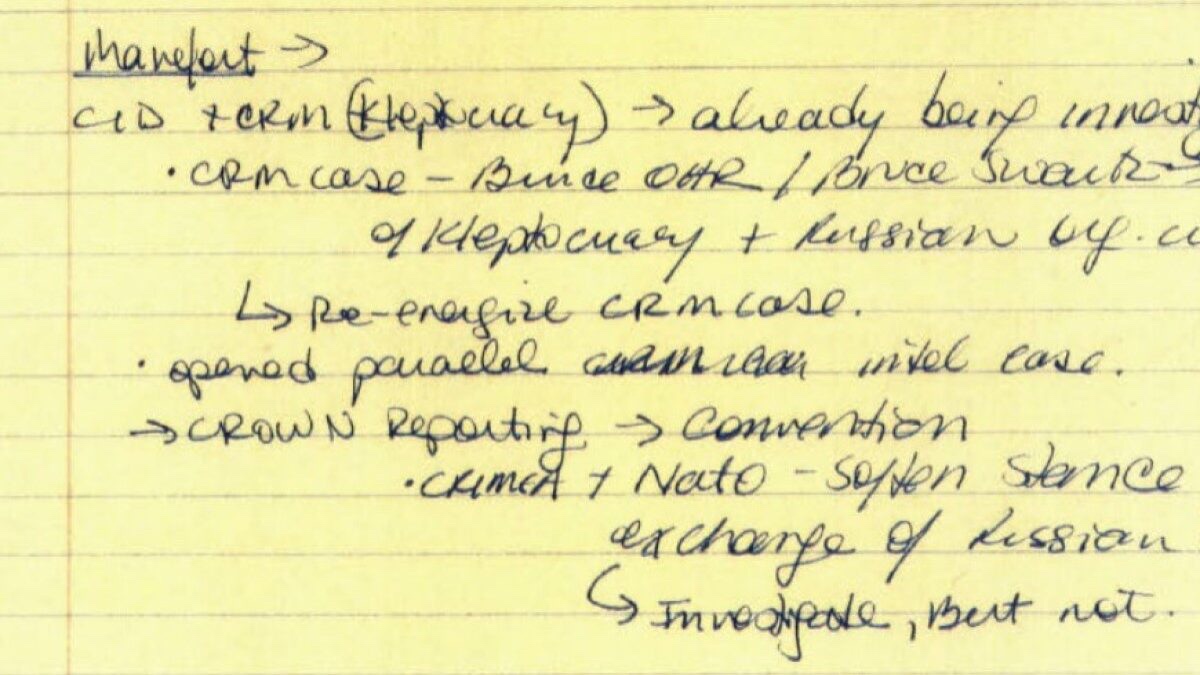 Manafort →
CID + CRM (Kleptocracy) → already being investig
· CRM case - Bruce OHR / Bruce Swartz →
of Kleptocracy + Russian org. c
↳ Re-energize CRM case.
· opened parallel intel case.
→ CROWN Reporting → Convention
· CRIMEA + Nato - Soften Stance
exchange of Russian
↳ Investigate, But not.